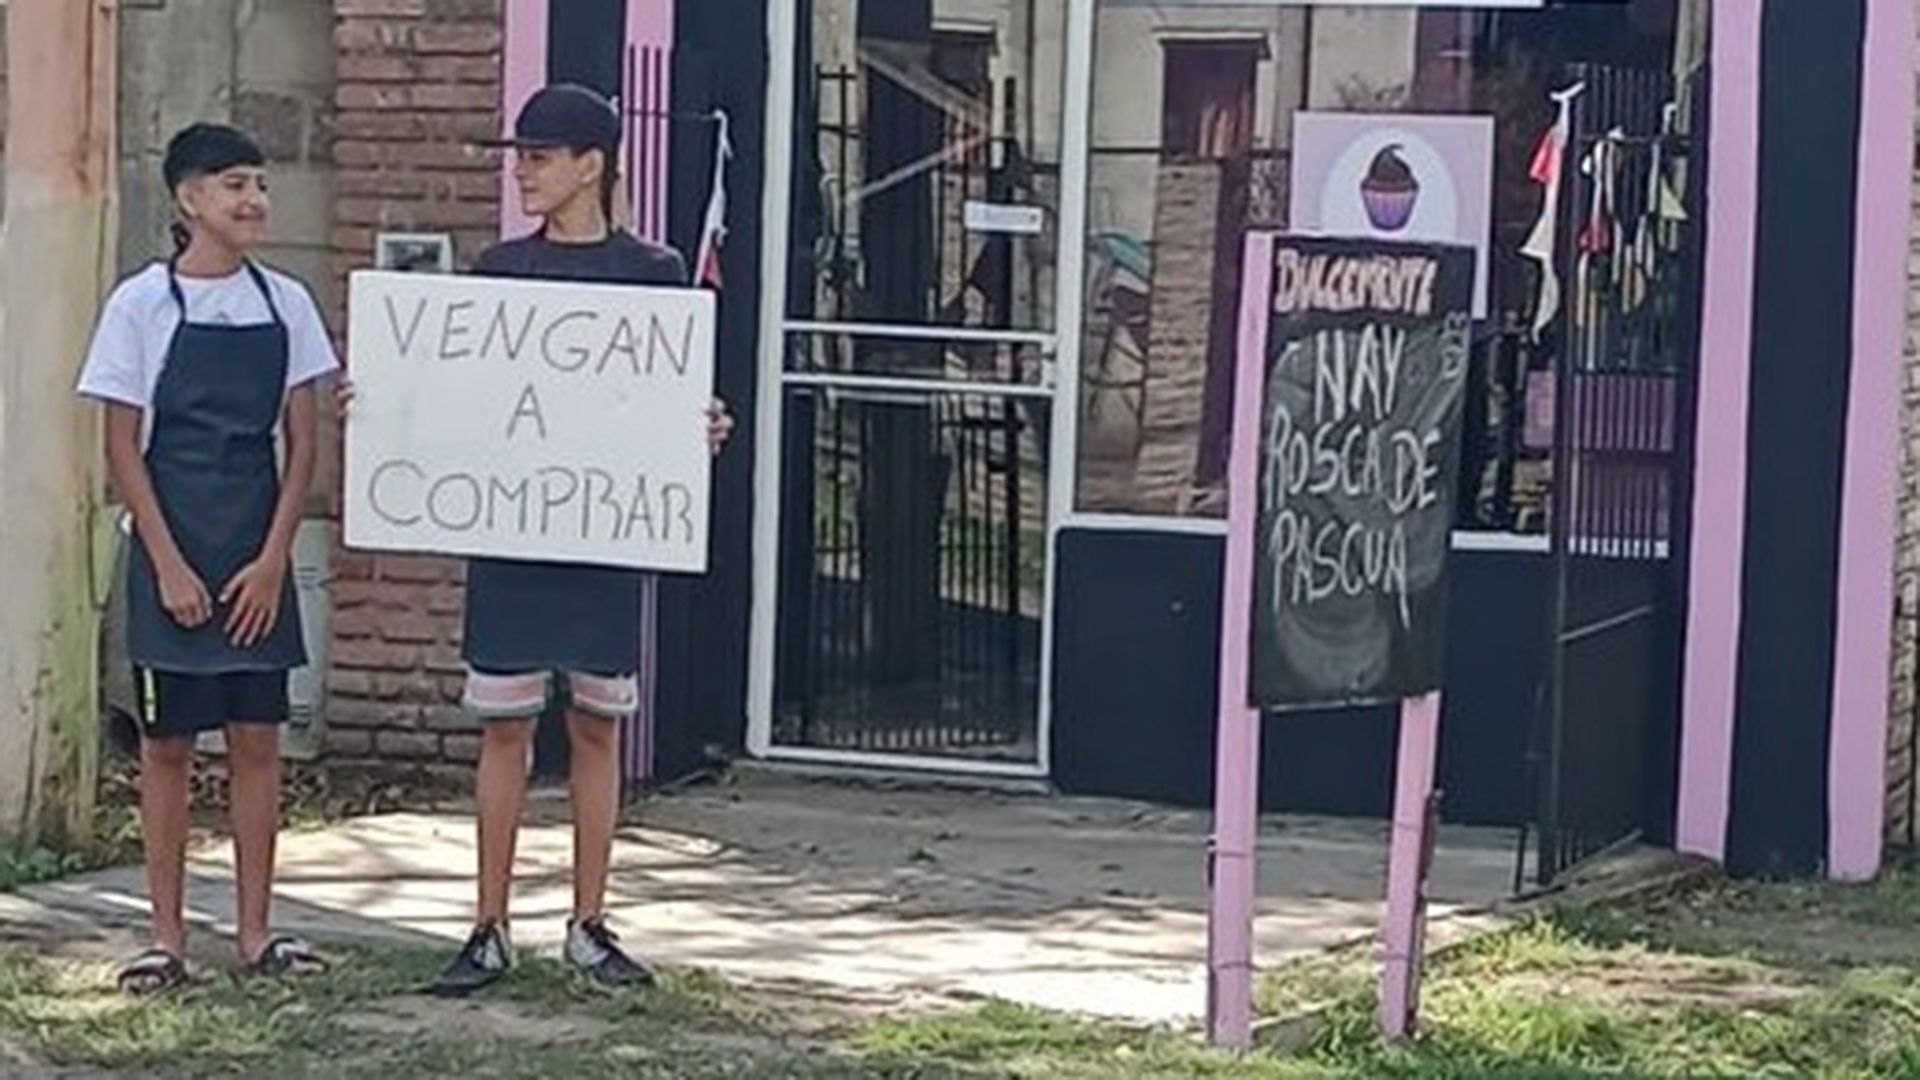 VENGAN
A
COMPRAR
DULCEMENTE
HAY
ROSCA DE
PASCUA